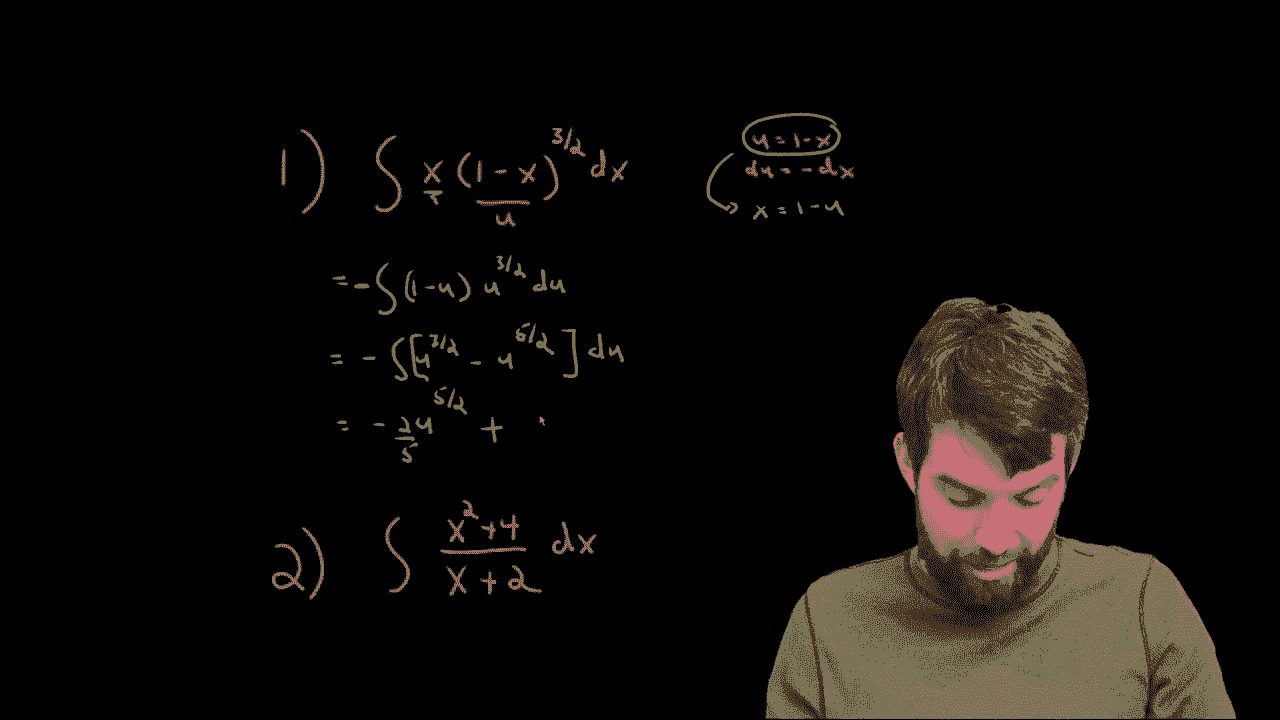 1) ∫ x (1-x)^{3/2} dx
u
u = 1-x
du = -dx
x = 1-u
= -∫ (1-u) u^{3/2} du
= -∫ [u^{3/2} - u^{5/2}] du
= -2/5 u^{5/2} +
2) ∫ (x^2+4)/(x+2) dx